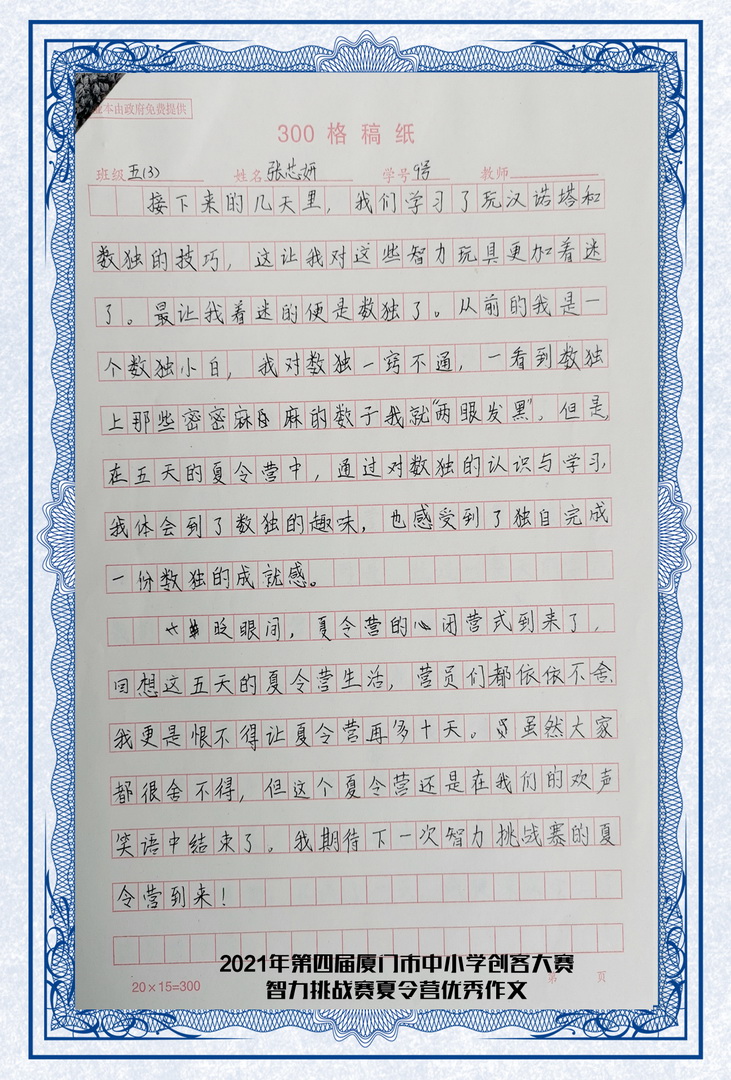 本由政府免费提供
300 格 稿 纸
班级 五(3) 姓名 张芯妍 学号 9号 教师
接下来的几天里，我们学习了玩汉诺塔和
数独的技巧，这让我对这些智力玩具更加着迷
了。最让我着迷的便是数独了。从前的我是一
个数独小白，我对数独一窍不通，一看到数独
上那些密密麻麻的数子我就“两眼发黑”。但是，
在五天的夏令营中，通过对数独的认识与学习，
我体会到了数独的趣味，也感受到了独自完成
一份数独的成就感。
眨眼间，夏令营的闭营式到来了，
回想这五天的夏令营生活，营员们都依依不舍.
我更是恨不得让夏令营再多十天。虽然大家
都很舍不得，但这个夏令营还是在我们的欢声
笑语中结束了。我期待下一次智力挑战赛的夏
令营到来！
20×15=300 第 页
2021年第四届厦门市中小学创客大赛
智力挑战赛夏令营优秀作文